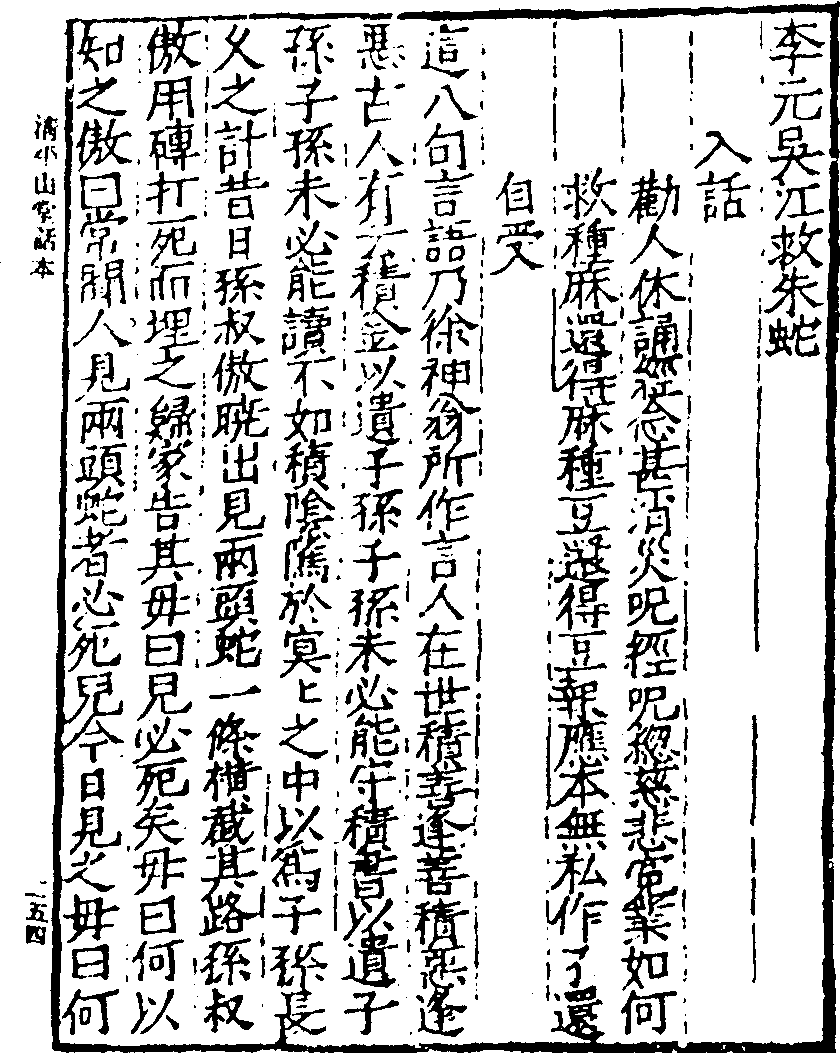 李元吳江救朱蛇
入話
勸人休誦經念甚消災呪經呪緫慈悲寃業如何
救種麻還得麻種豆還得豆報應本無私作了還
自受
這八句言語乃徐神翁所作言人在世積善逢善積惡逢
惡古人有云積金以遺子孫子孫未必能守積書以遺子
孫子孫未必能讀不如積陰隲於冥〻之中以爲子孫長
乆之計昔日孫叔傲曉出見兩頭蛇一條橫截其路孫叔
傲用磚打死而埋之歸家告其毋曰兒必死矣毋曰何以
知之傲曰常聞人見兩頭蛇者必死兒今日見之毋曰何
清平山堂話本
一五四